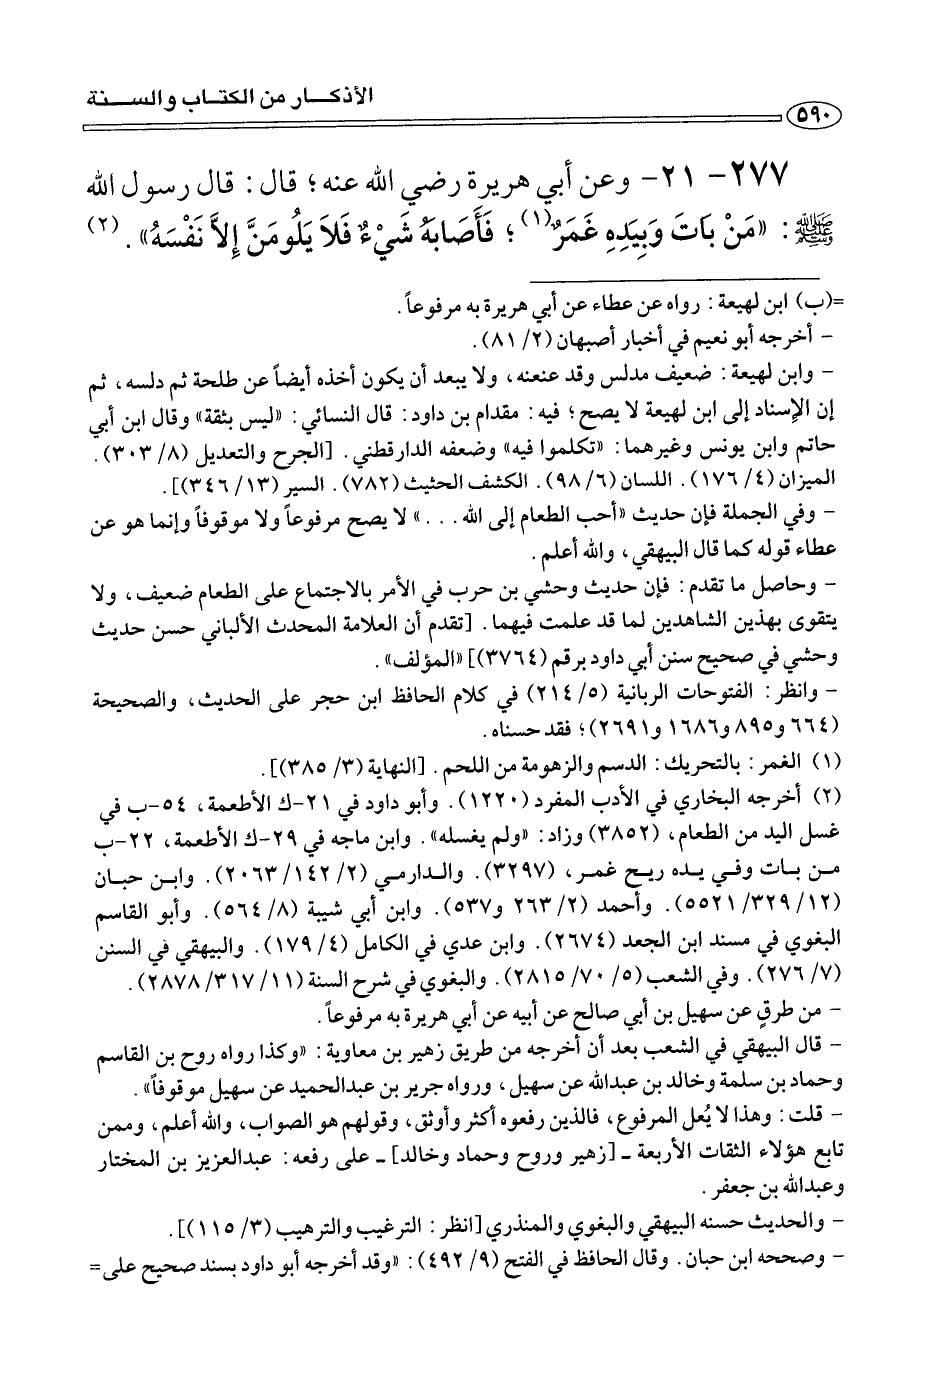 الأذكـــار من الكتـاب والســـنة
٥٩٠
٢٧٧- ٢١- وعن أبي هريرة رضي الله عنه؛ قال: قال رسول الله
ﷺ: «مَنْ بَاتَ وَبِيَدِهِ غَمَرٌ(١)؛ فَأَصَابَهُ شَيْءٌ فَلاَ يَلُومَنَّ إِلاَّ نَفْسَهُ». (٢)
=(ب) ابن لهيعة: رواه عن عطاء عن أبي هريرة به مرفوعاً.
- أخرجه أبو نعيم في أخبار أصبهان (٢/ ٨١).
- وابن لهيعة: ضعيف مدلس وقد عنعنه، ولا يبعد أن يكون أخذه أيضاً عن طلحة ثم دلسه، ثم
إن الإسناد إلى ابن لهيعة لا يصح؛ فيه: مقدام بن داود: قال النسائي: «ليس بثقة» وقال ابن أبي
حاتم وابن يونس وغيرهما: «تكلموا فيه» وضعفه الدارقطني. [الجرح والتعديل (٨/ ٣٠٣).
الميزان (٤/ ١٧٦). اللسان (٦/ ٩٨). الكشف الحثيث (٧٨٢). السير (١٣/ ٣٤٦)].
- وفي الجملة فإن حديث «أحب الطعام إلى الله . . .» لا يصح مرفوعاً ولا موقوفاً وإنما هو عن
عطاء قوله كما قال البيهقي، والله أعلم.
- وحاصل ما تقدم: فإن حديث وحشي بن حرب في الأمر بالاجتماع على الطعام ضعيف، ولا
يتقوى بهذين الشاهدين لما قد علمت فيهما. [تقدم أن العلامة المحدث الألباني حسن حديث
وحشي في صحيح سنن أبي داود برقم (٣٧٦٤)] «المؤلف».
- وانظر: الفتوحات الربانية (٥/ ٢١٤) في كلام الحافظ ابن حجر على الحديث، والصحيحة
(٦٦٤ و٨٩٥ و١٦٨٦ و٢٦٩١)؛ فقد حسناه.
(١) الغمر: بالتحريك: الدسم والزهومة من اللحم. [النهاية (٣/ ٣٨٥)].
(٢) أخرجه البخاري في الأدب المفرد (١٢٢٠). وأبو داود في ٢١-ك الأطعمة، ٥٤-ب في
غسل اليد من الطعام، (٣٨٥٢) وزاد: «ولم يغسله». وابن ماجه في ٢٩-ك الأطعمة، ٢٢-ب
من بات وفي يده ريح غمر، (٣٢٩٧). والدارمي (٢/ ١٤٢/ ٢٠٦٣). وابن حبان
(١٢/ ٣٢٩/ ٥٥٢١). وأحمد (٢/ ٢٦٣ و٥٣٧). وابن أبي شيبة (٨/ ٥٦٤). وأبو القاسم
البغوي في مسند ابن الجعد (٢٦٧٤). وابن عدي في الكامل (٤/ ١٧٩). والبيهقي في السنن
(٧/ ٢٧٦). وفي الشعب (٥/ ٧٠/ ٢٨١٥). والبغوي في شرح السنة (١١/ ٣١٧/ ٢٨٧٨).
- من طرقٍ عن سهيل بن أبي صالح عن أبيه عن أبي هريرة به مرفوعاً.
- قال البيهقي في الشعب بعد أن أخرجه من طريق زهير بن معاوية: «وكذا رواه روح بن القاسم
وحماد بن سلمة وخالد بن عبدالله عن سهيل، ورواه جرير بن عبدالحميد عن سهيل موقوفاً».
- قلت: وهذا لا يُعل المرفوع، فالذين رفعوه أكثر وأوثق، وقولهم هو الصواب، والله أعلم، وممن
تابع هؤلاء الثقات الأربعة ـ [زهير وروح وحماد وخالد] ـ على رفعه: عبدالعزيز بن المختار
وعبدالله بن جعفر.
- والحديث حسنه البيهقي والبغوي والمنذري [انظر: الترغيب والترهيب (٣/ ١١٥)].
- وصححه ابن حبان. وقال الحافظ في الفتح (٩/ ٤٩٢): «وقد أخرجه أبو داود بسند صحيح على=